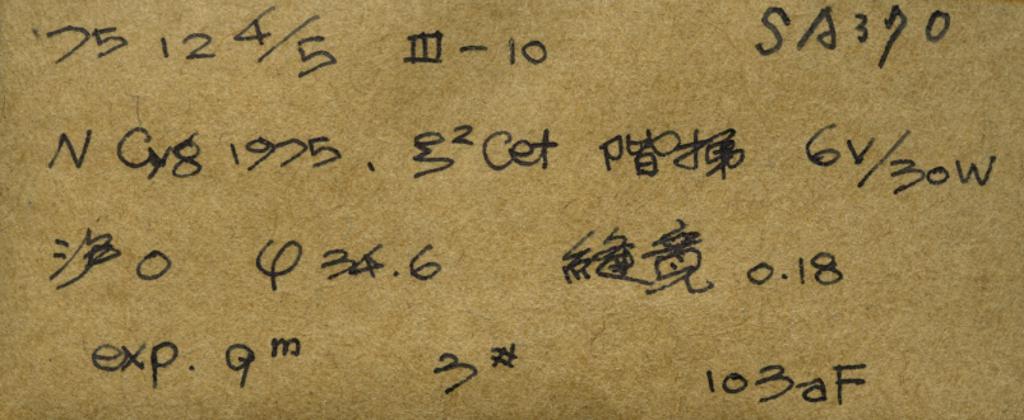 '75 12 4/5 III-10 SA370
N Cyg 1975. ξ² Cet 階梯 6V/30W
沪 0 φ 34.6 縫寬 0.18
exp. 9ᵐ 3# 103aF